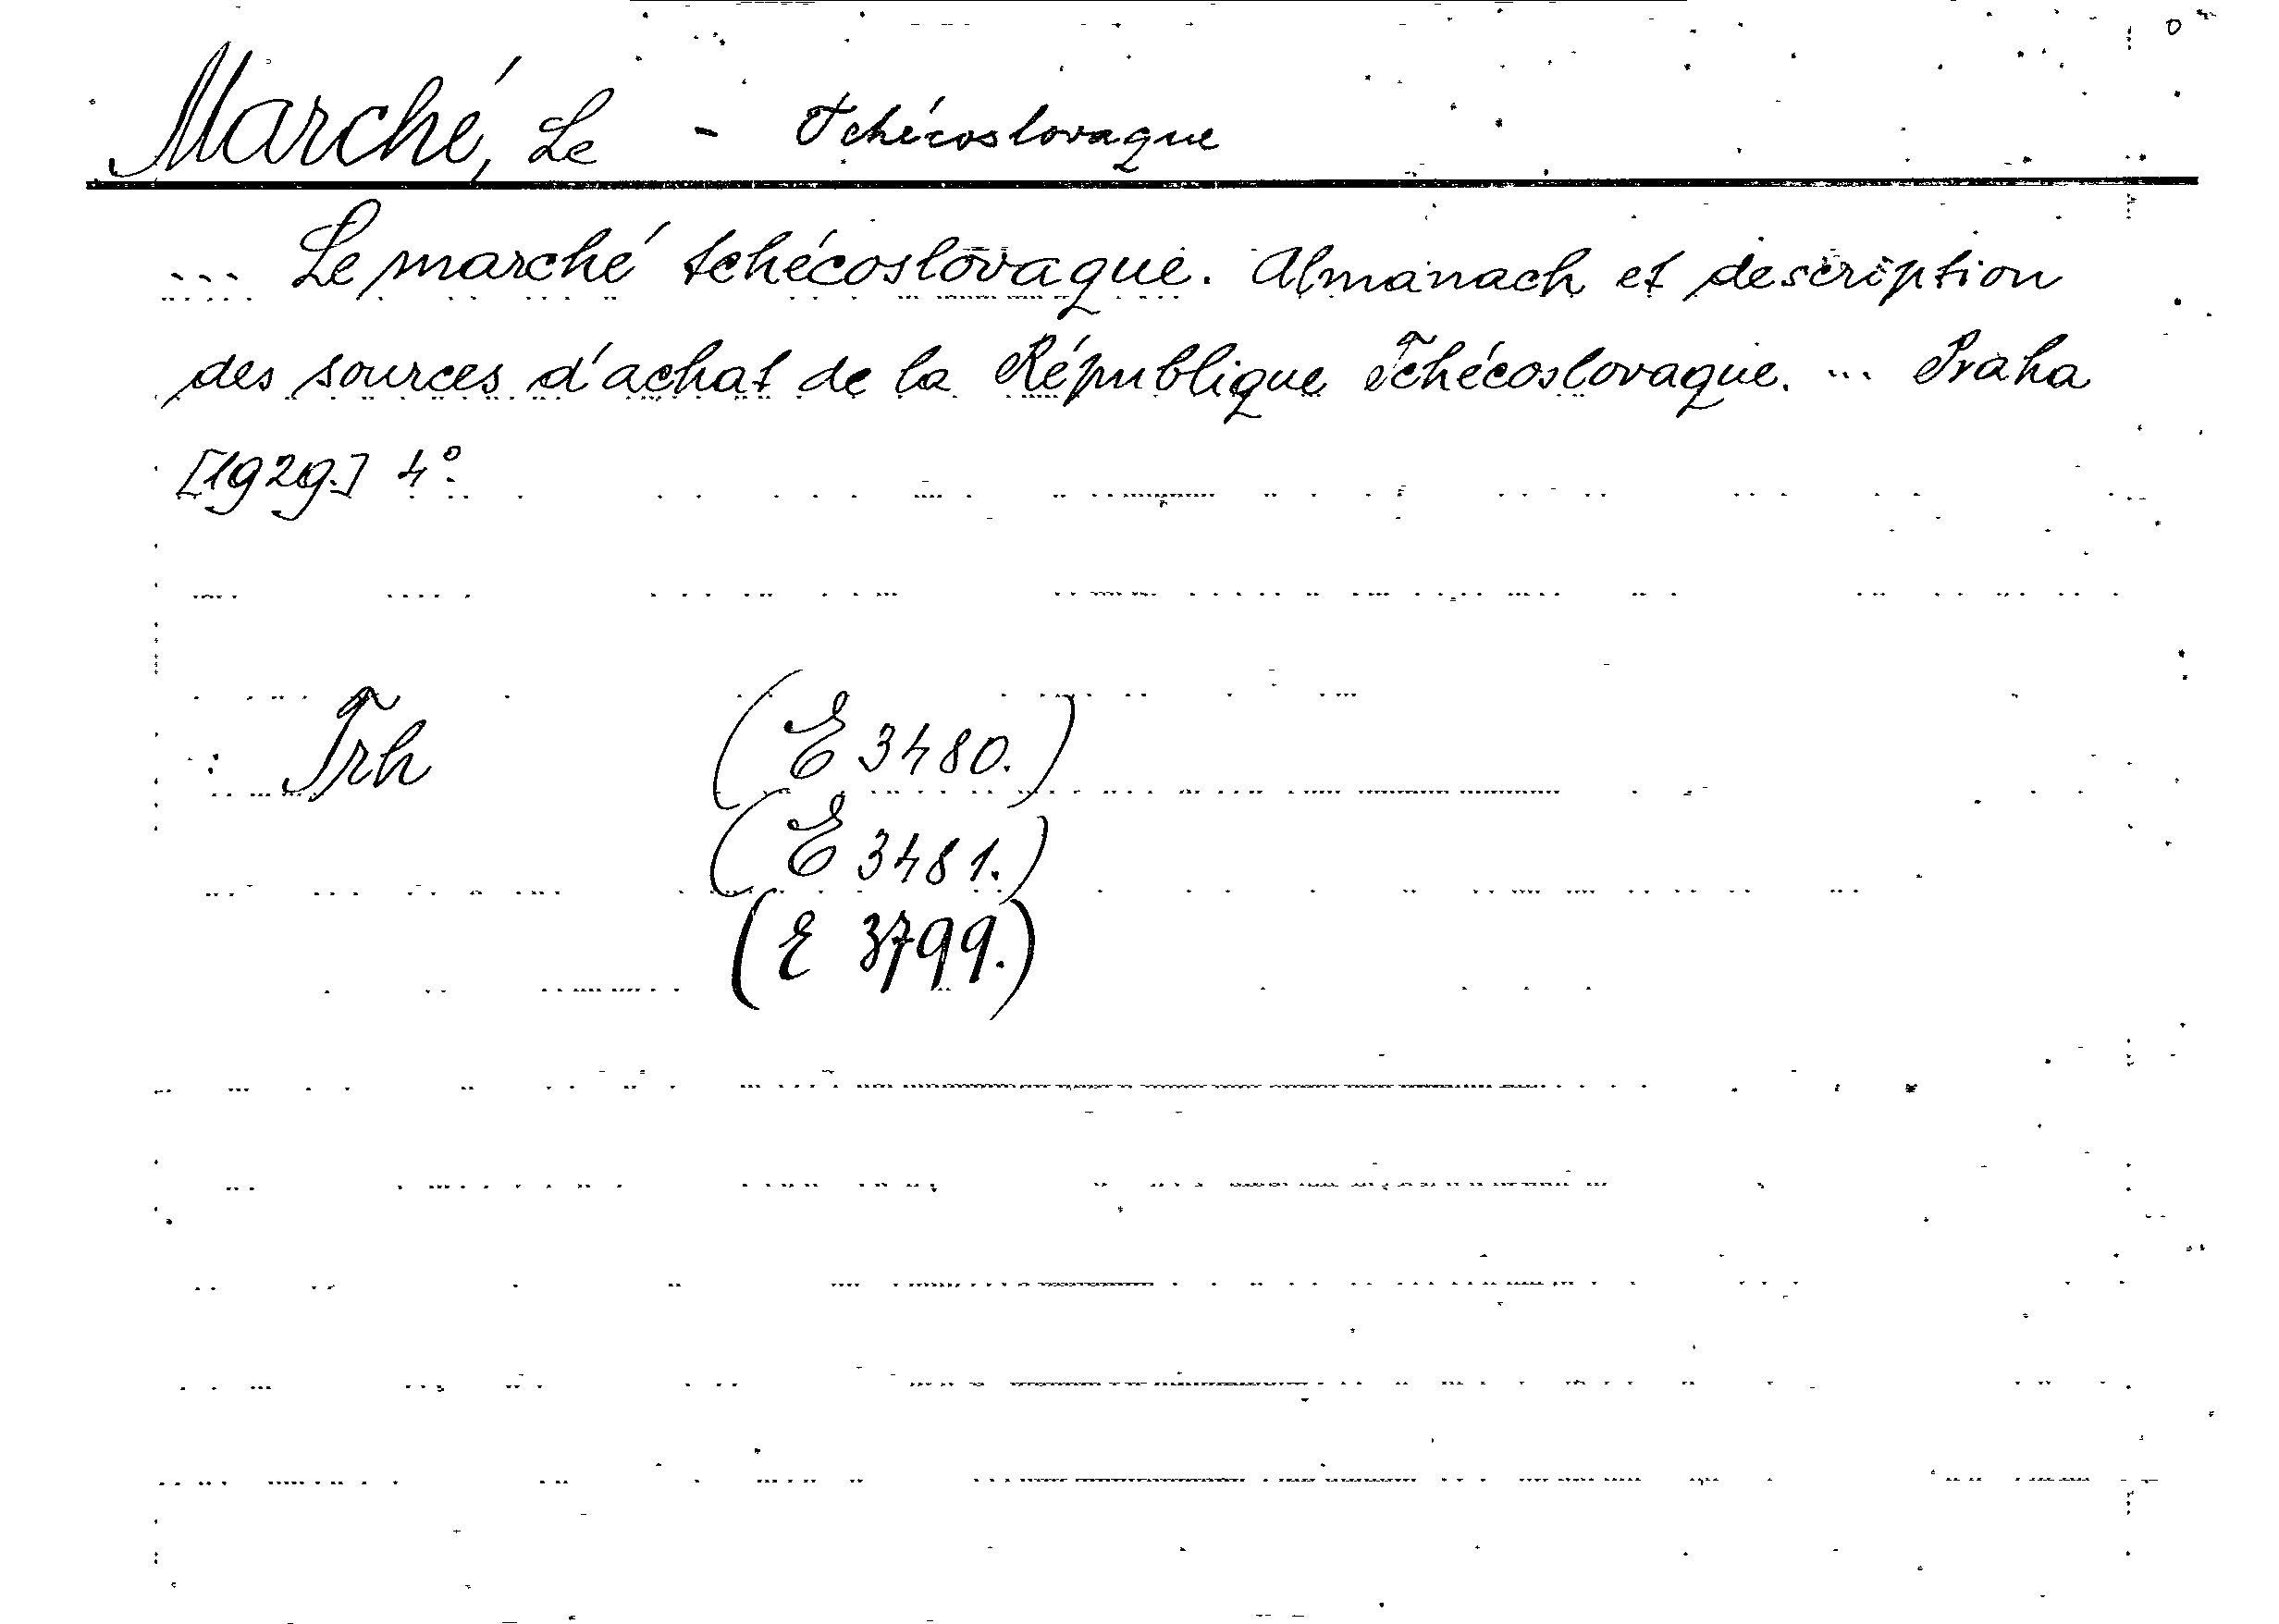 Marché, Le - Tchécoslovaque
... Le marché tchécoslovaque. Almanach et description
des sources d'achat de la République Tchécoslovaque. ... Praha
[1929.] 4°.
Trh (E 3480.)
(E 3481.)
(E 3799.)